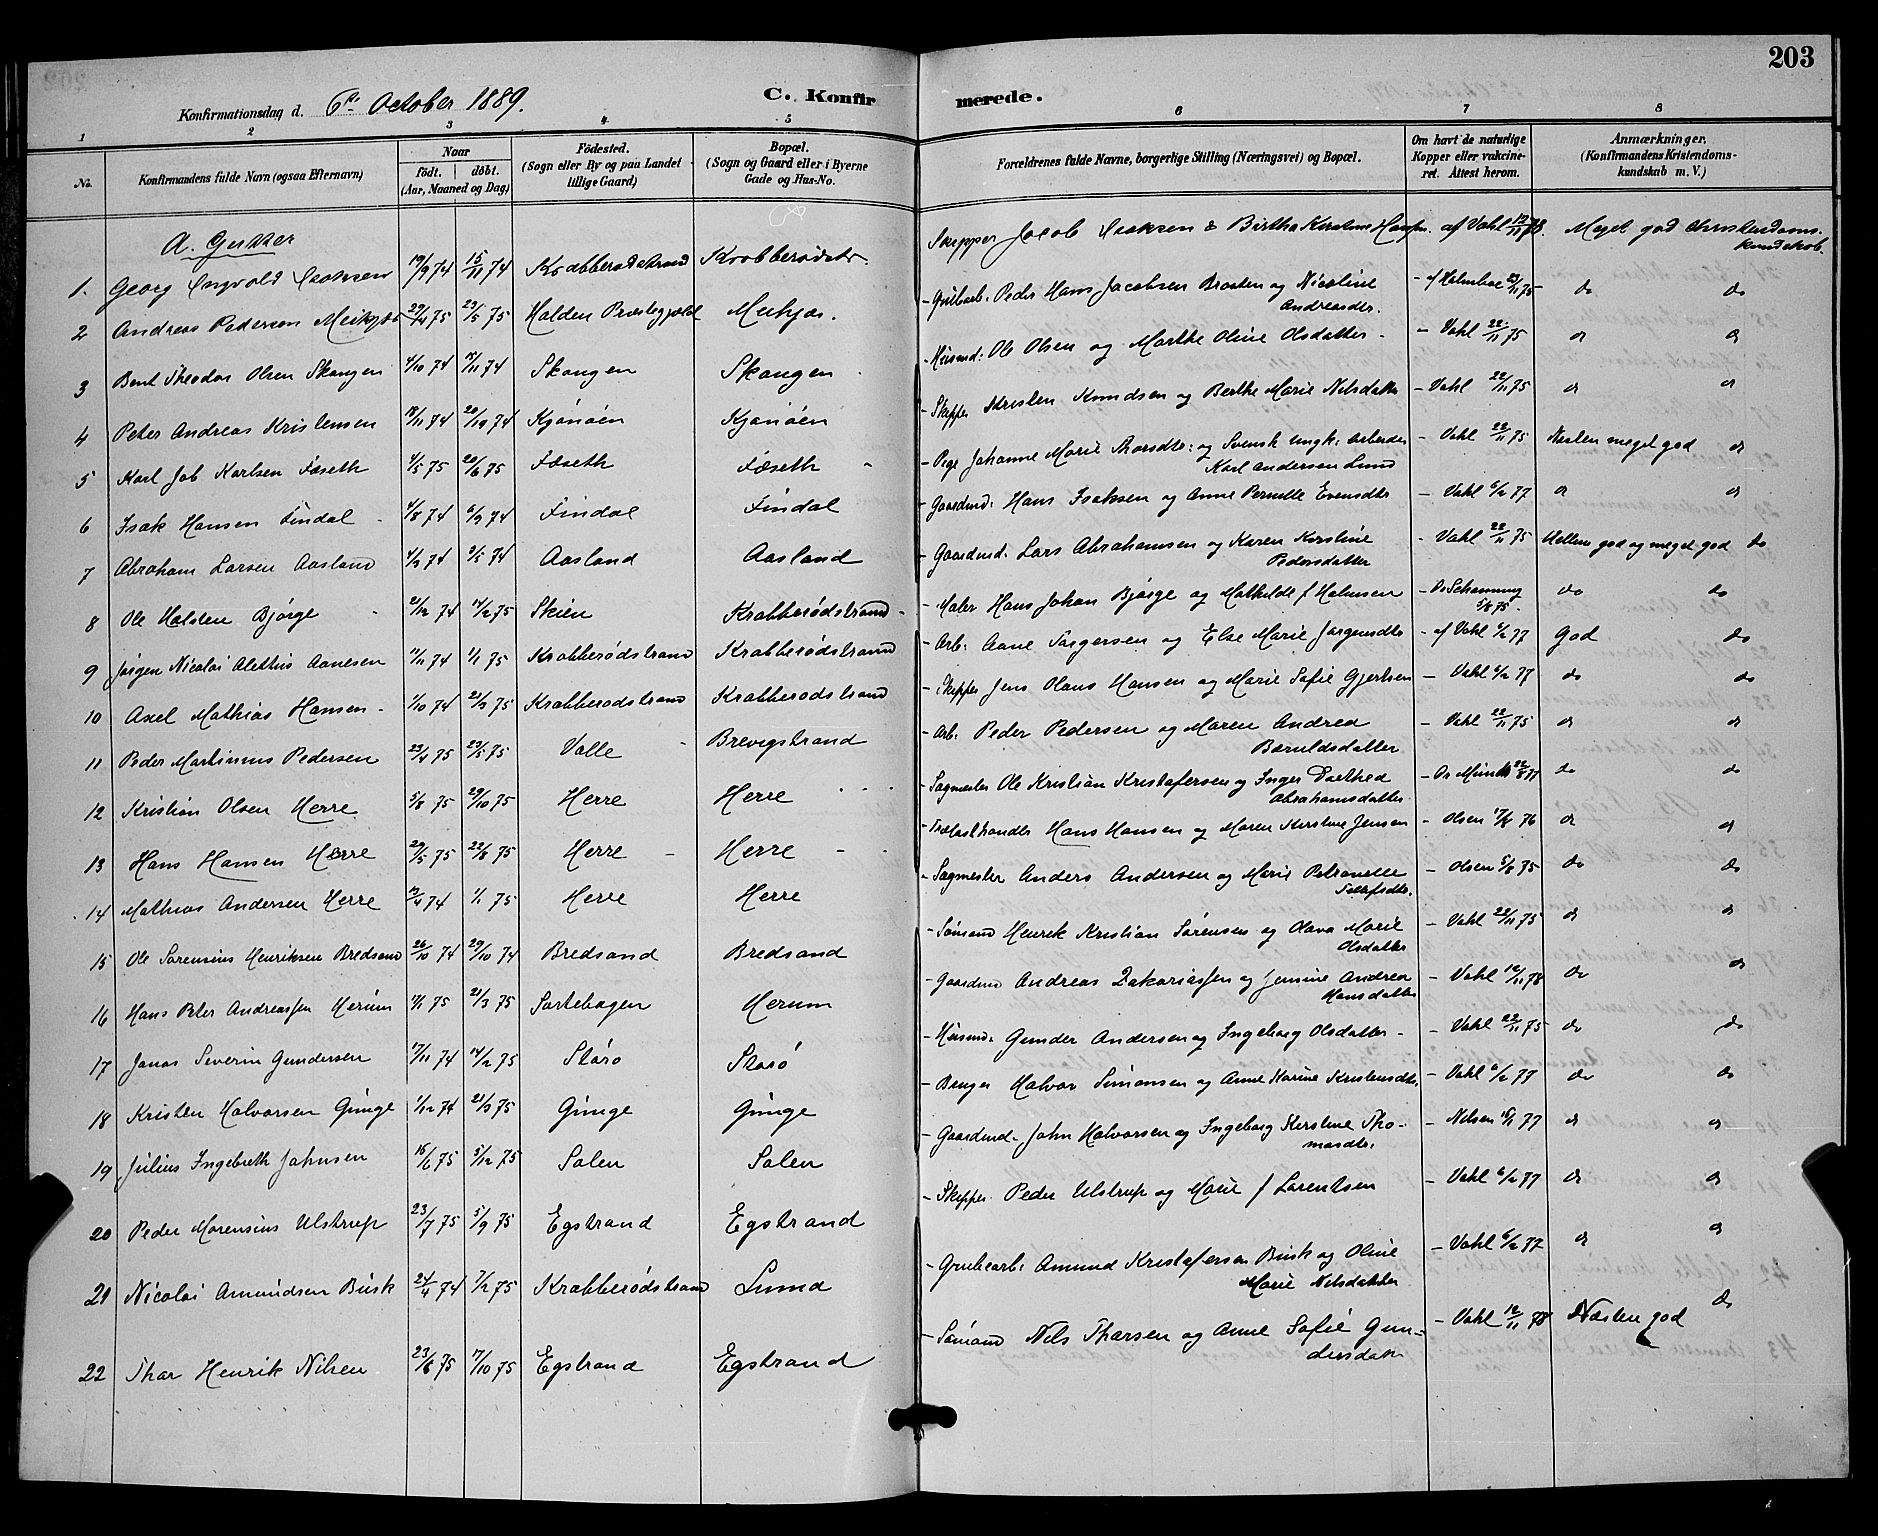 203
Konfirmationsdag d. 6te October 1889.
C. Konfirmerede.
1 2 3 4 5 6 7 8
No.
Konfirmandens fulde Navn (ogsaa Efternavn)
Naar
født. døbt.
(Aar, Maaned og Dag)
Födested.
(Sogn eller By og paa Landet tillige Gaard)
Bopæl.
(Sogn og Gaard eller i Byerne Gade og Hus-No.
Forældrenes fulde Navne, borgerlige Stilling (Næringsvei) og Bopæl.
Om havt de naturlige Kopper eller vakcineret. Attest herom.
Anmærkninger.
(Konfirmandens Kristendomskundskab m. V.)
A. Gutter
1. Georg Ingvold Isaksen 19/9 74 15/11 74 Krabberødstrand Krabberødstr. Skipper Jacob Isaksen & Birthe Kirstine Hansen. af Vahl 12/11 78. Meget god Christendomskundskab.
2 Andreas Pedersen Meikjær 29/4 75 23/5 75 Halden Præstegjæld Meikjær. Grubarb. Peder Hans Jacobsen Braaten og Nicoline Andreasdtr. - af Holmboe 23/11 75 do do
3 Bent Theodor Olsen Skougen 4/10 74 15/11 74 Skougen Skougen Huusmd: Ole Olsen og Marthe Oline Olsdatter - Vahl 22/11 75 do do
4 Peter Andreas Kristensen 18/11 74 20/12 74 Kjønøen Kjønøen - Skipper Kristen Knudsen og Berthe Marie Nilsdatter - Vahl 22/11 75 do do
5 Karl Job Karlsen Fæseth 4/5 75 20/6 75 Fæseth Fæseth - Pige Johanne Marie Thorsdtr: og Svensk ungk: arbeider Karl Andersen Lund - Vahl 22/11 75 Næsten meget god do
6 Isak Hansen Findal 4/8 74 6/9 74 Findal Findal - Gaardmd: Hans Isaksen og Anne Pernille Evensdtr - Vahl 6/2 77 do do
7 Abraham Larsen Aasland 4/3 74 3/5 74 Aasland Aasland - Gaardmd. Lars Abrahamsen og Karen Kirstine Pedersdatter - Vahl 22/11 75 Mellem god og meget god do
8 Ole Halsten Bjørge 2/12 74 14/2 75 Skien Krabberødstrand - Maler Hans Johan Bjørge og Mathilde f Halmsen - Dr Schanning 5/8 75 - do do
9 Jørgen Nicolai Alethius Aanesen 11/11 74 1/1 75 Krabberødstrand Krabberødstrand - Arb: Aane Jørgensen og Else Marie Jørgensdtr - af Vahl 6/2 77 God do
10 Axel Mathias Hansen - 1/10 74 21/3 75 Krabberødstrand Krabberødstrand - Skipper Jens Olaus Hansen og Marie Sofie Gjertsen - Vahl 6/2 77 do do
11 Peder Martinius Pedersen 23/4 75 23/5 75 Valle Brevigstrand - Arb: Peder Pedersen og Maren Andrea Baruldsdatter - Vahl 22/11 75 do do
12 Kristian Olsen Herre 5/8 75 29/10 75 Herre Herre - Sagmester Ole Kristian Kristofersen og Inger Dorthea Abrahamsdatter - Dr Münk 22/8 77 do do
13 Hans Hansen Herre 29/5 75 22/8 75 Herre - Herre - Trælasthandler Hans Hansen og Maren Kirstine Jensen - Olsen 17/8 76 do do
14 Mathias Andersen Herre 12/4 74 1/1 75 Herre Herre - Sagmester Anders Andersen og Marie Petronelle Tollefsdtr. - Olsen 5/8 75 do do
15 Ole Sørensius Henriksen Bredsand 26/10 74 29/10 74 Bredsand Bredsand - Sømand Henrik Kristian Sørensen og Olava Marie Olsdatter - Vahl 22/11 75 do do
16 Hans Peter Andreassen Herum 4/1 75 21/3 75 Sortebogen Herum - Gaardmd Andreas Zakariassen og Jensine Andrea Hansdatter - Vahl 12/11 78 do do
17 Jonas Severin Gundersen 17/11 74 14/2 75 Storø Storø - Huusmd: Gunder Andersen og Ingeborg Olsdatter - - Vahl 22/11 75 do do
18 Kristen Halvorsen Gunge 1/12 74 21/3 75 Gunge Gunge - Bruger Halvor Simonsen og Anne Karine Kristensdtr - Vahl 6/2 77 do do
19 Julius Ingebreth Johnsen 15/6 75 5/12 75 Solen Solen - Gaardmd. John Halvorsen og Ingeborg Kirstine Thomasdtr. - Nilsen 15/1 77 do do
20 Peder Morensius Ulstrup 23/7 75 5/9 75 Egstrand Egstrand - Skipper Peder Ulstrup og Marie f Larentsen - Vahl 6/2 77 do do
21 Nicolai Amundsen Busk 24/4 74 7/2 75 Krabberødstrand Lund - Grubearb: Amund Kristofersen Busk og Oline Marie Nilsdatter - Vahl 6/2 77 do do
22 Thor Henrik Nilsen 23/6 75 7/10 75 Egstrand Egstrand - Sømand Nils Thorsen og Anne Sofie Gundersdatter - Vahl 12/11 78 Næsten god do